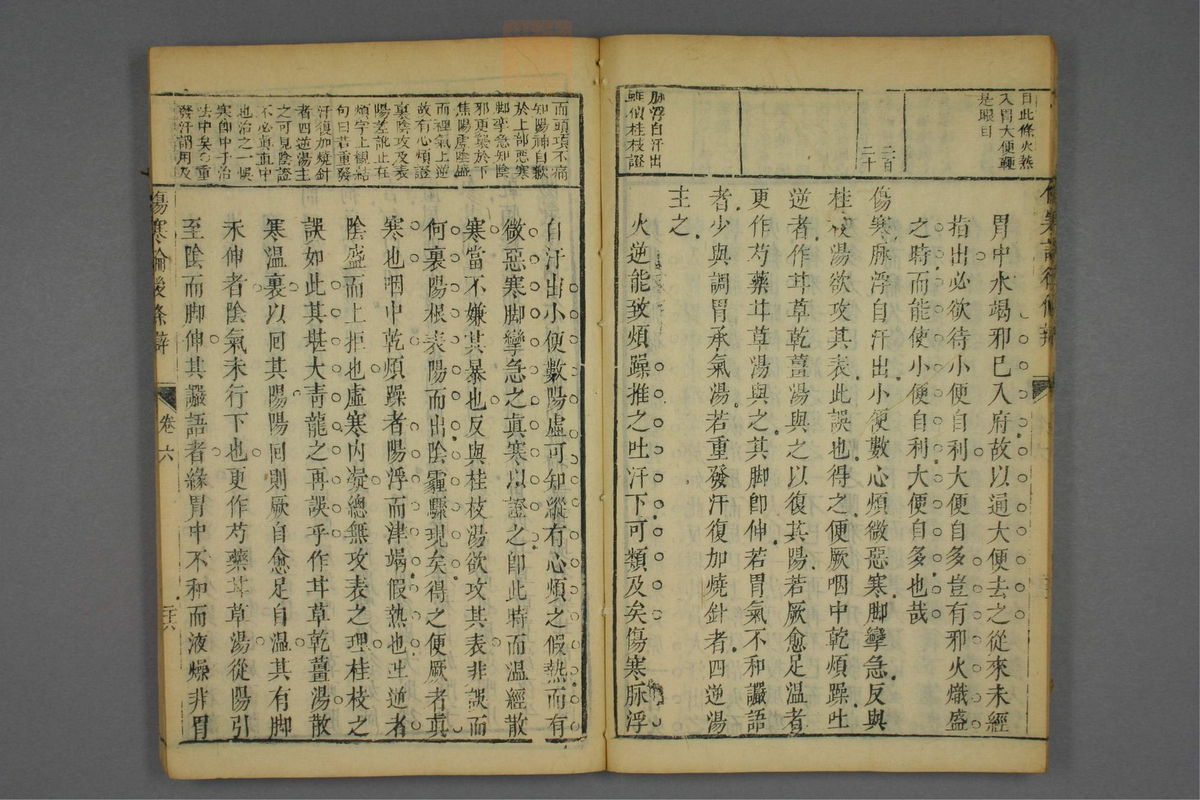 自此條火熱
入胃大便鞕
是眼目
二百
二十
脉浮自汗出
鮮似桂枝證
胃中水竭邪已入府故以通大便去之從來未經
指出必欲待小便自利大便自多豈有邪火熾盛
之時而能使小便自利大便自多也哉
傷寒脈浮自汗出小便數心煩微惡寒脚攣急反與
桂枝湯欲攻其表此誤也得之便厥咽中乾煩躁吐
逆者作甘草乾薑湯與之以復其陽若厥愈足温者
更作芍藥甘草湯與之其脚卽伸若胃氣不和讝語
者少與調胃承氣湯若重發汗復加燒針者四逆湯
主之
火逆能致煩躁推之吐汗下可類及矣傷寒脈浮
而頭項不痛
知陽神自歉
於上部惡寒
脚攣急知陰
邪更襲於下
焦陽虛陰盛
而裡氣上逆
故有心煩證
裏陰攻及表
陽差訛止在
煩字上觀結
句曰若重發
汗復加燒針
者四逆湯主
之可見陰證
不必眞直中
也治之一悞
寒卽中于治
法中矣○重
發汗謂用及
自汗出小便數陽虛可知縱有心煩之假熱而有
微惡寒脚攣急之眞寒以證之卽此時而温經散
寒當不嫌其暴也反與桂枝湯欲攻其表非誤而
何裏陽根表陽而出陰霾驟現矣得之便厥者眞
寒也咽中乾煩躁者陽浮而津竭假熱也吐逆者
陰盛而上拒也虛寒内凝總無攻表之理桂枝之
誤如此其堪大青龍之再誤乎作甘草乾薑湯散
寒温裏以回其陽陽回則厥自愈足自温其有脚
未伸者陰氣未行下也更作芍藥甘草湯從陽引
至陰而脚伸其讝語者緣胃中不和而液燥非胃
傷寒論後條辯
卷六